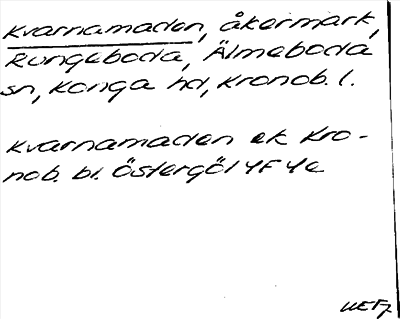 Kvarnamaden, åkermark,
Rungeboda, Älmeboda
sn, Konga hd, Kronob. l.
Kvarnamaden ek Kro-
nob. bl. Östergöl 4F 4e